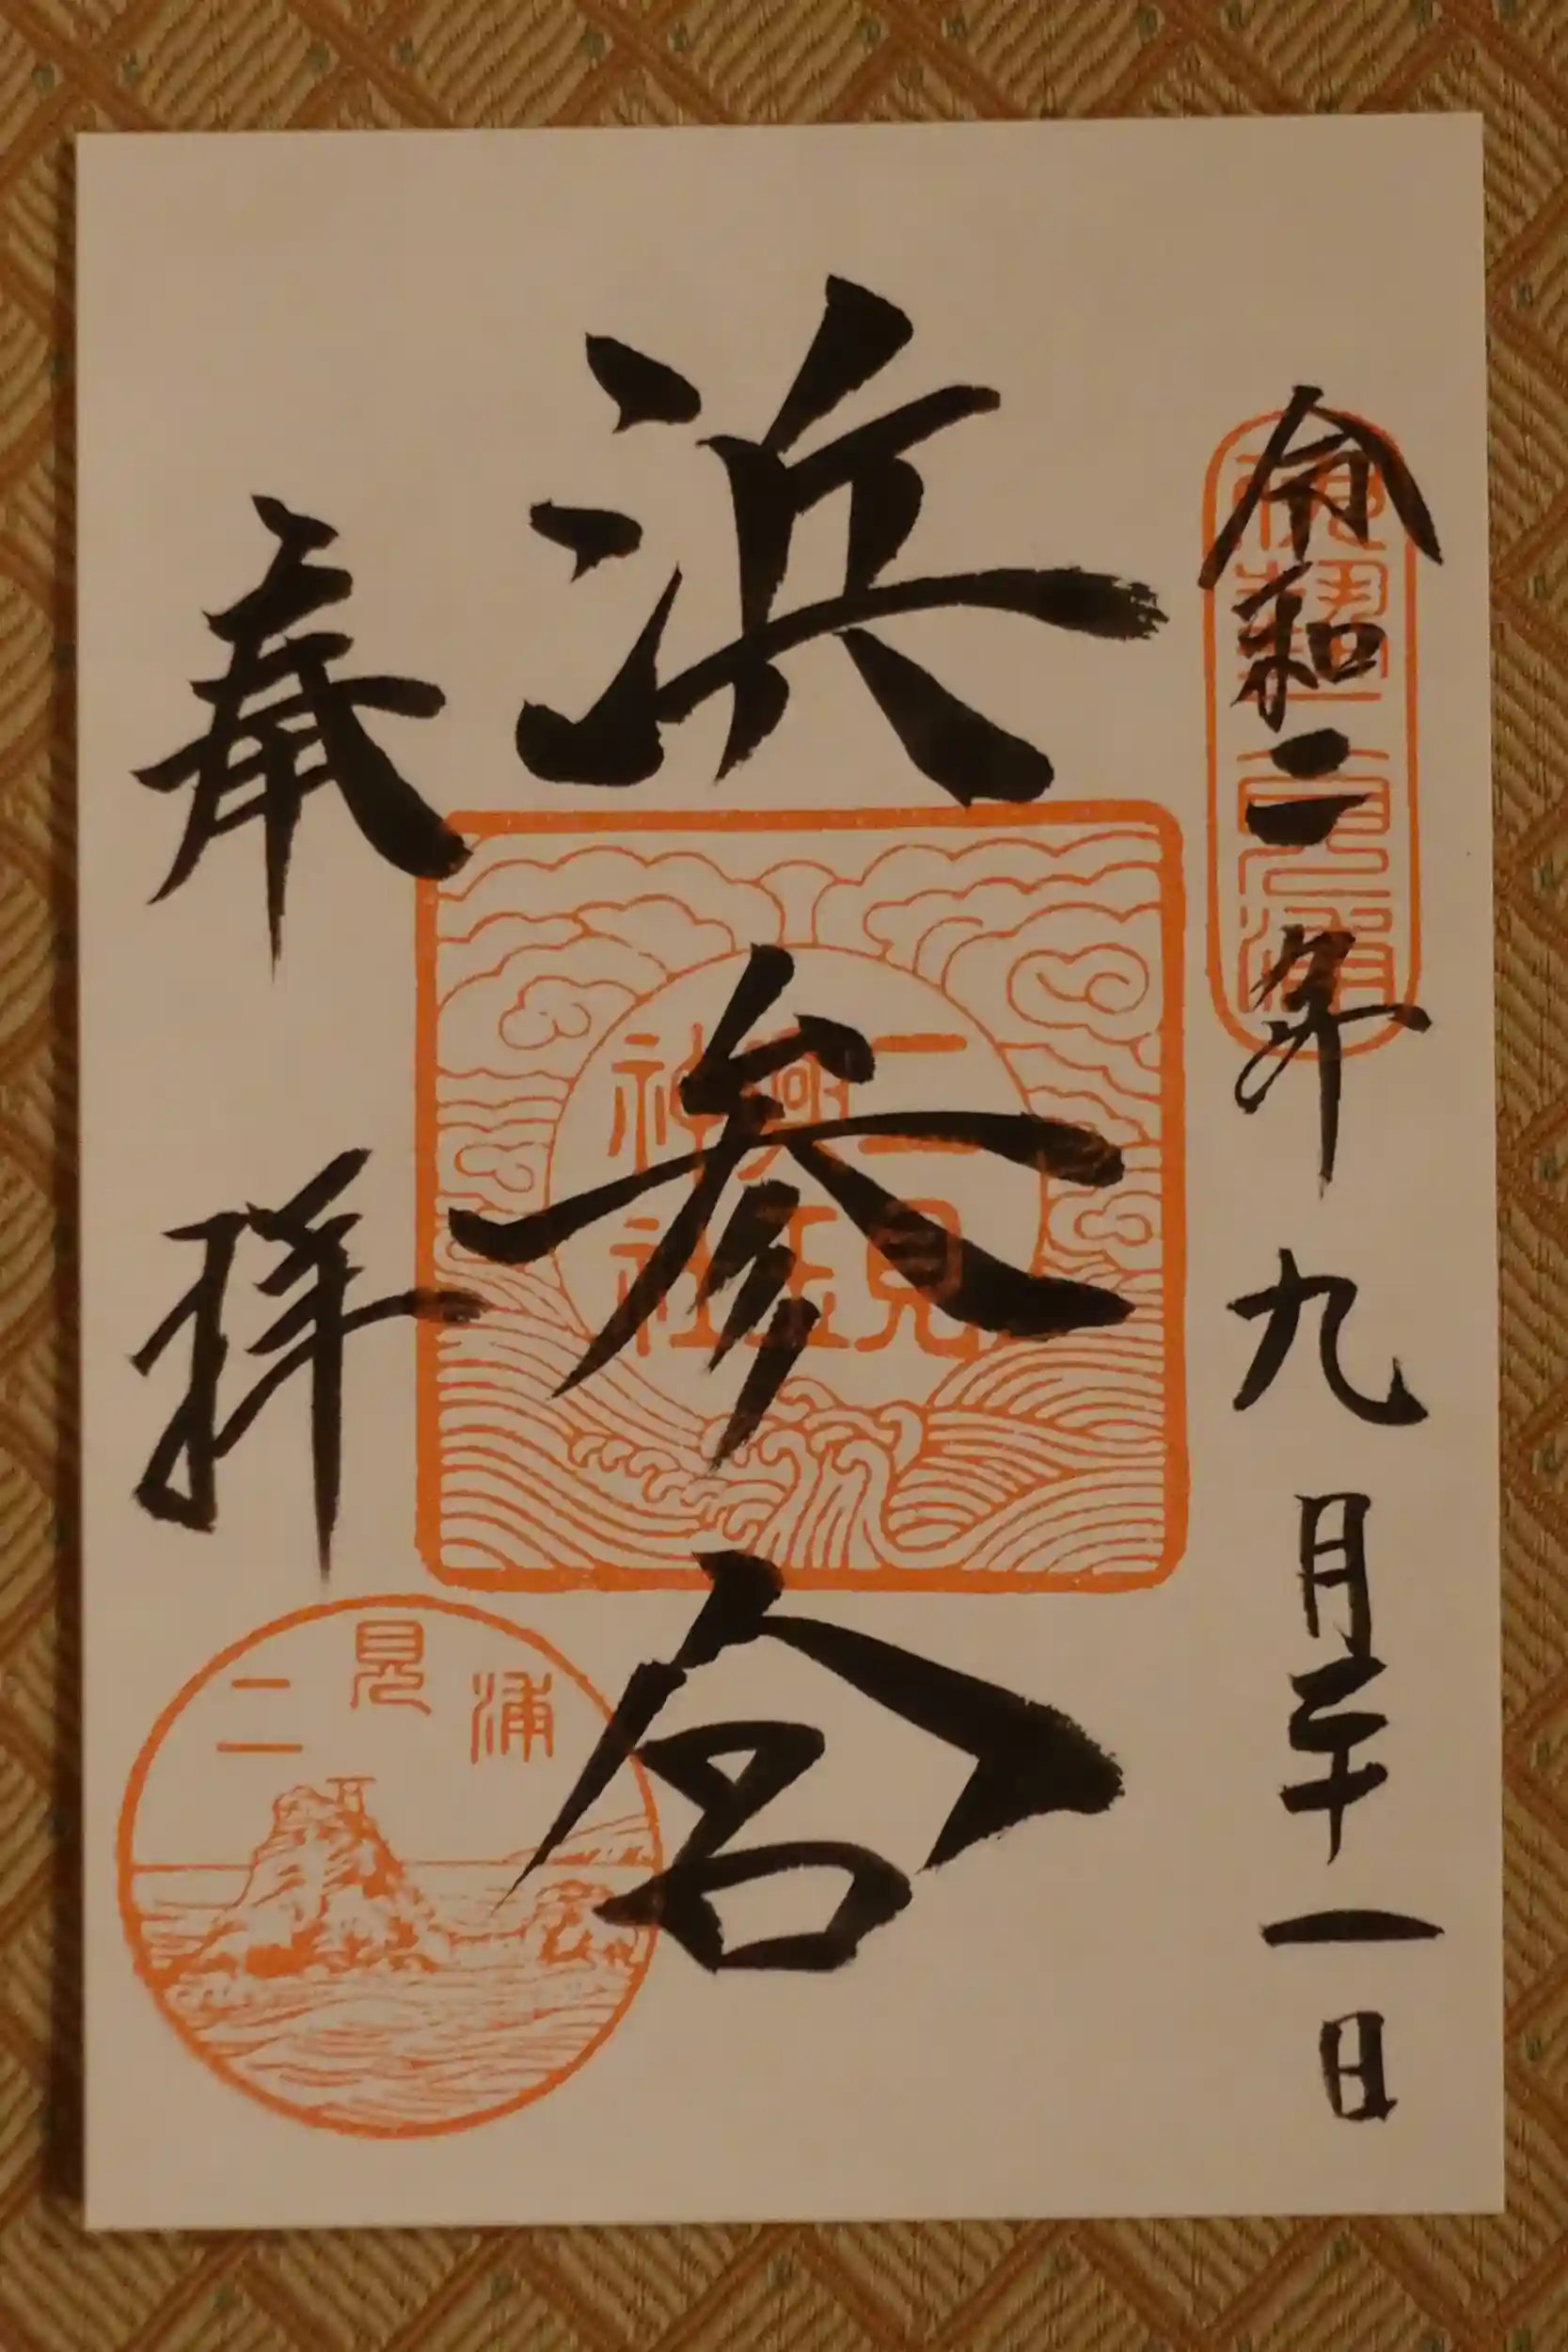 令和二年九月二十一日
二見浦
浜参宮
二見
興玉
神社
奉拝
二見浦